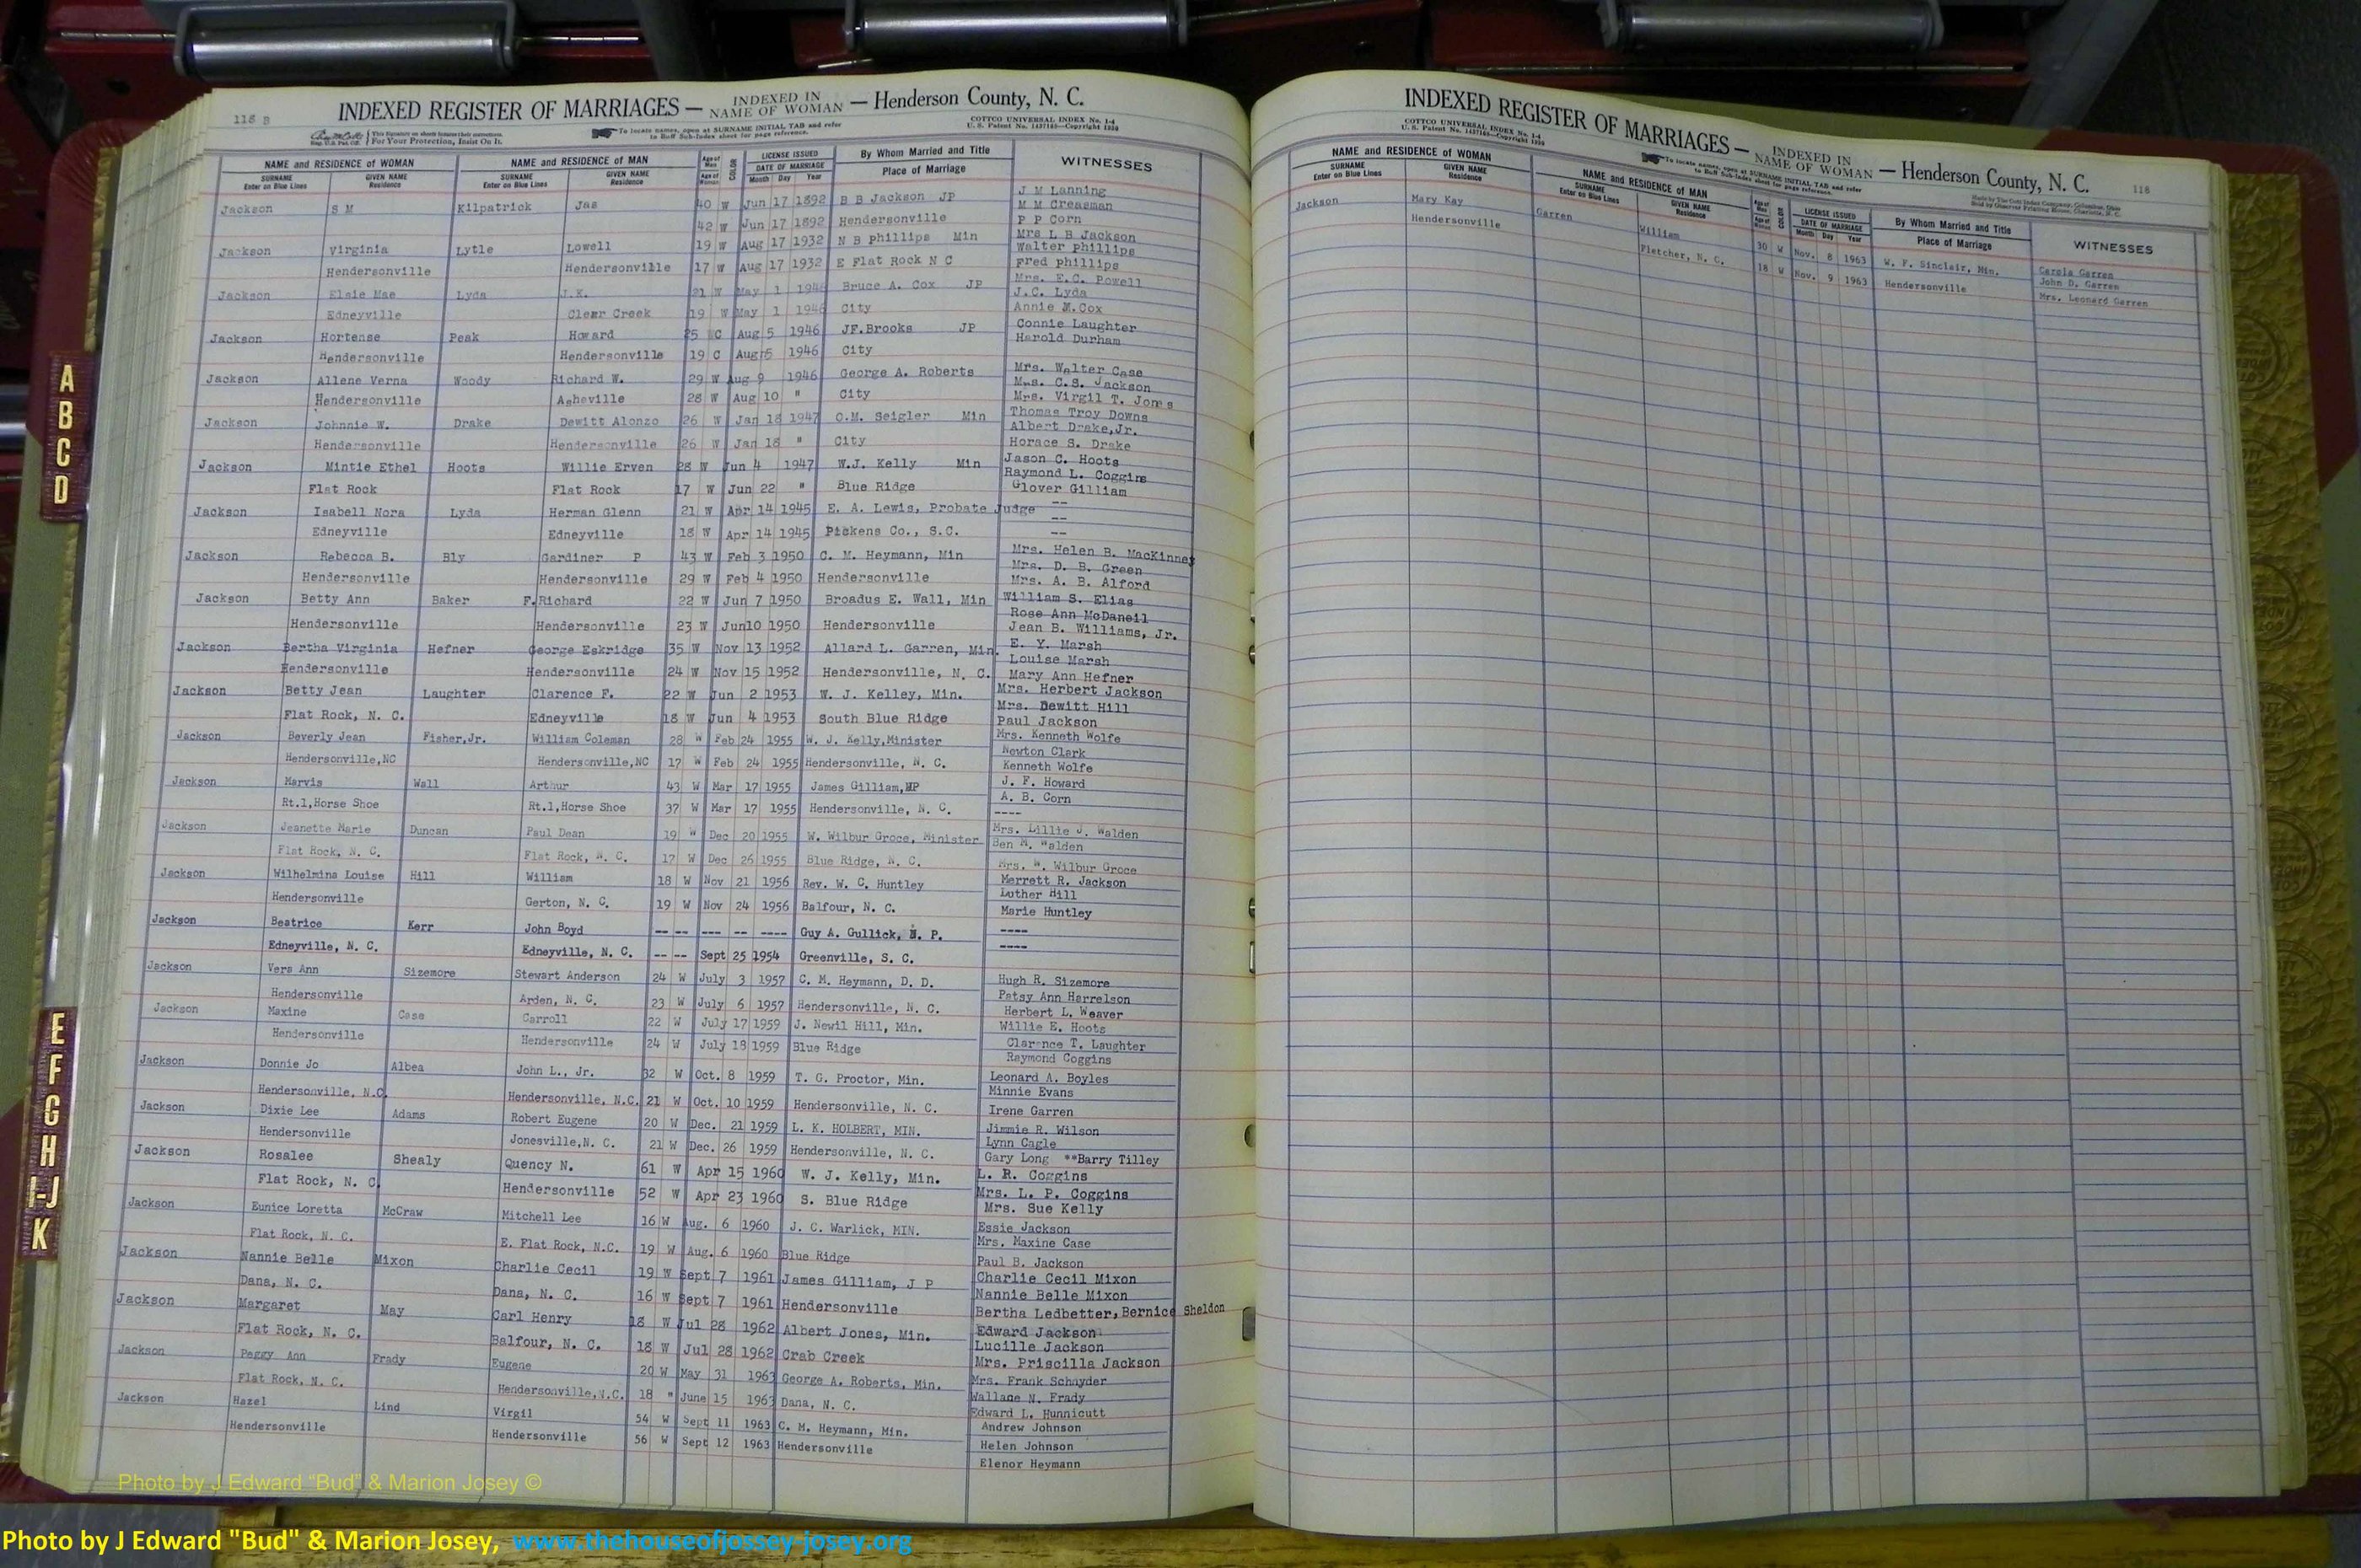 118 B
INDEXED REGISTER OF MARRIAGES — INDEXED IN NAME OF WOMAN — Henderson County, N. C.
For Your Protection, Insist On It.
To locate names, open at SURNAME INITIAL TAB and refer to Buff Sub-Index sheet for page reference.
COTTCO UNIVERSAL INDEX No. 1-4
U. S. Patent No. 1437165—Copyright 1930
NAME and RESIDENCE OF WOMAN NAME and RESIDENCE OF MAN Age of Man COLOR LICENSE ISSUED By Whom Married and Title WITNESSES
SURNAME Enter on Blue Lines GIVEN NAME Residence SURNAME Enter on Blue Lines GIVEN NAME Residence Age of Woman DATE OF MARRIAGE Month Day Year Place of Marriage
J M Lanning
Jackson S M Kilpatrick Jas 40 W Jun 17 1892 B B Jackson JP M M Creasman
42 W Jun 17 1892 Hendersonville P P Corn
Jackson Virginia Lytle Lowell 19 W Aug 17 1932 N B Phillips Min Mrs L B Jackson
Walter Phillips
Hendersonville Hendersonville 17 W Aug 17 1932 E Flat Rock N C Fred Phillips
Jackson Elsie Mae Lyda J.K. 21 W May 1 1946 Bruce A. Cox JP Mrs. E.C. Powell
J.C. Lyda
Edneyville Clear Creek 19 W May 1 1946 City Annie M.Cox
Jackson Hortense Peak Howard 25 WC Aug 5 1946 JF.Brooks JP Connie Laughter
Harold Durham
Hendersonville Hendersonville 19 C Aug 5 1946 City
Jackson Allene Verna Woody Richard W. 29 W Aug 9 1946 George A. Roberts Mrs. Walter Case
Mrs. C.S. Jackson
Hendersonville Asheville 28 W Aug 10 " City Mrs. Virgil T. Jones
Jackson Johnnie W. Drake Dewitt Alonzo 26 W Jan 18 1947 O.M. Seigler Min Thomas Troy Downs
Albert Drake,Jr.
Hendersonville Hendersonville 26 W Jan 18 " City Horace S. Drake
Jackson Mintie Ethel Hoots Willie Erven 28 W Jun 4 1947 W.J. Kelly Min Jason C. Hoots
Raymond L. Coggins
Flat Rock Flat Rock 17 W Jun 22 " Blue Ridge Glover Gilliam
Jackson Isabell Nora Lyda Herman Glenn 21 W Apr 14 1945 E. A. Lewis, Probate Judge --
--
Edneyville Edneyville 18 W Apr 14 1945 Pickens Co., S.C. --
Jackson Rebecca B. Bly Gardiner P 43 W Feb 3 1950 C. M. Heymann, Min Mrs. Helen B. MacKinney
Mrs. D. B. Green
Hendersonville Hendersonville 29 W Feb 4 1950 Hendersonville Mrs. A. B. Alford
Jackson Betty Ann Baker F. Richard 22 W Jun 7 1950 Broadus E. Wall, Min William S. Elias
Rose Ann McDaneil
Hendersonville Hendersonville 23 W Jun10 1950 Hendersonville Jean B. Williams, Jr.
Jackson Bertha Virginia Hefner George Eskridge 35 W Nov 13 1952 Allard L. Garren, Min. E. Y. Marsh
Louise Marsh
Hendersonville Hendersonville 24 W Nov 15 1952 Hendersonville, N. C. Mary Ann Hefner
Jackson Betty Jean Laughter Clarence F. 22 W Jun 2 1953 W. J. Kelley, Min. Mrs. Herbert Jackson
Mrs. Dewitt Hill
Flat Rock, N. C. Edneyville 18 W Jun 4 1953 South Blue Ridge Paul Jackson
Jackson Beverly Jean Fisher,Jr. William Coleman 28 W Feb 24 1955 W. J. Kelly,Minister Mrs. Kenneth Wolfe
Newton Clark
Hendersonville,NC Hendersonville,NC 17 W Feb 24 1955 Hendersonville, N. C. Kenneth Wolfe
Jackson Marvis Wall Arthur 43 W Mar 17 1955 James Gilliam,MP J. F. Howard
A. B. Corn
Rt.1,Horse Shoe Rt.1,Horse Shoe 37 W Mar 17 1955 Hendersonville, N. C. ----
Jackson Jeanette Marie Duncan Paul Dean 19 W Dec 20 1955 W. Wilbur Groce, Minister Mrs. Lillie J. Walden
Ben M. Walden
Flat Rock, N. C. Flat Rock, N. C. 17 W Dec 26 1955 Blue Ridge, N. C. Mrs. W. Wilbur Groce
Jackson Wilhelmina Louise Hill William 18 W Nov 21 1956 Rev. W. C. Huntley Merrett R. Jackson
Luther Hill
Hendersonville Gerton, N. C. 19 W Nov 24 1956 Balfour, N. C. Marie Huntley
Jackson Beatrice Kerr John Boyd -- -- --- -- ---- Guy A. Gullick, N. P. ----
Edneyville, N. C. Edneyville, N. C. -- -- Sept 25 1954 Greenville, S. C. ----
Jackson Vera Ann Sizemore Stewart Anderson 24 W July 3 1957 C. M. Heymann, D. D. Hugh R. Sizemore
Patsy Ann Harrelson
Hendersonville Arden, N. C. 23 W July 6 1957 Hendersonville, N. C. Herbert L. Weaver
Jackson Maxine Case Carroll 22 W July 17 1959 J. Newil Hill, Min. Willie E. Hoots
Clarence T. Laughter
Hendersonville Hendersonville 24 W July 18 1959 Blue Ridge Raymond Coggins
Jackson Donnie Jo Albea John L., Jr. 32 W Oct. 8 1959 T. G. Proctor, Min. Leonard A. Boyles
Minnie Evans
Hendersonville, N.C. Hendersonville, N.C. 21 W Oct. 10 1959 Hendersonville, N. C. Irene Garren
Jackson Dixie Lee Adams Robert Eugene 20 W Dec. 21 1959 L. K. HOLBERT, MIN. Jimmie R. Wilson
Lynn Cagle
Hendersonville Jonesville,N. C. 21 W Dec. 26 1959 Hendersonville, N. C. Gary Long **Barry Tilley
Jackson Rosalee Shealy Quency N. 61 W Apr 15 1960 W. J. Kelly, Min. L. R. Coggins
Mrs. L. P. Coggins
Flat Rock, N. C. Hendersonville 52 W Apr 23 1960 S. Blue Ridge Mrs. Sue Kelly
Jackson Eunice Loretta McCraw Mitchell Lee 16 W Aug. 6 1960 J. C. Warlick, MIN. Essie Jackson
Mrs. Maxine Case
Flat Rock, N. C. E. Flat Rock, N.C. 19 W Aug. 6 1960 Blue Ridge Paul B. Jackson
Jackson Nannie Belle Mixon Charlie Cecil 19 W Sept 7 1961 James Gilliam, J P Charlie Cecil Mixon
Nannie Belle Mixon
Dana, N. C. Dana, N. C. 16 W Sept 7 1961 Hendersonville Bertha Ledbetter, Bernice Sheldon
Jackson Margaret May Carl Henry 18 W Jul 28 1962 Albert Jones, Min. Edward Jackson
Lucille Jackson
Flat Rock, N. C. Balfour, N. C. 18 W Jul 28 1962 Crab Creek Mrs. Priscilla Jackson
Jackson Peggy Ann Frady Eugene 20 W May 31 1963 George A. Roberts, Min. Mrs. Frank Schnyder
Wallace N. Frady
Flat Rock, N. C. Hendersonville,N.C. 18 " June 15 1963 Dana, N. C. Edward L. Hunnicutt
Jackson Hazel Lind Virgil 54 W Sept 11 1963 C. M. Heymann, Min. Andrew Johnson
Helen Johnson
Hendersonville Hendersonville 56 W Sept 12 1963 Hendersonville Elenor Heymann
INDEXED REGISTER OF MARRIAGES — INDEXED IN NAME OF WOMAN — Henderson County, N. C.
118
COTTCO UNIVERSAL INDEX No. 1-4
U. S. Patent No. 1437165—Copyright 1930
To locate names, open at SURNAME INITIAL TAB and refer to Buff Sub-Index sheet for page reference.
NAME and RESIDENCE OF WOMAN NAME and RESIDENCE OF MAN Age of Man COLOR LICENSE ISSUED By Whom Married and Title WITNESSES
SURNAME Enter on Blue Lines GIVEN NAME Residence SURNAME Enter on Blue Lines GIVEN NAME Residence Age of Woman DATE OF MARRIAGE Month Day Year Place of Marriage
Jackson Mary Kay Garren William 30 W Nov. 8 1963 W. F. Sinclair, Min. Carola Garren
John D. Garren
Hendersonville Fletcher, N. C. 18 W Nov. 9 1963 Hendersonville Mrs. Leonard Garren
A
B
C
D
E
F
G
H
I-J
K
Photo by J Edward “Bud” & Marion Josey ©
Photo by J Edward "Bud" & Marion Josey, www.thehouseofjossey-josey.org